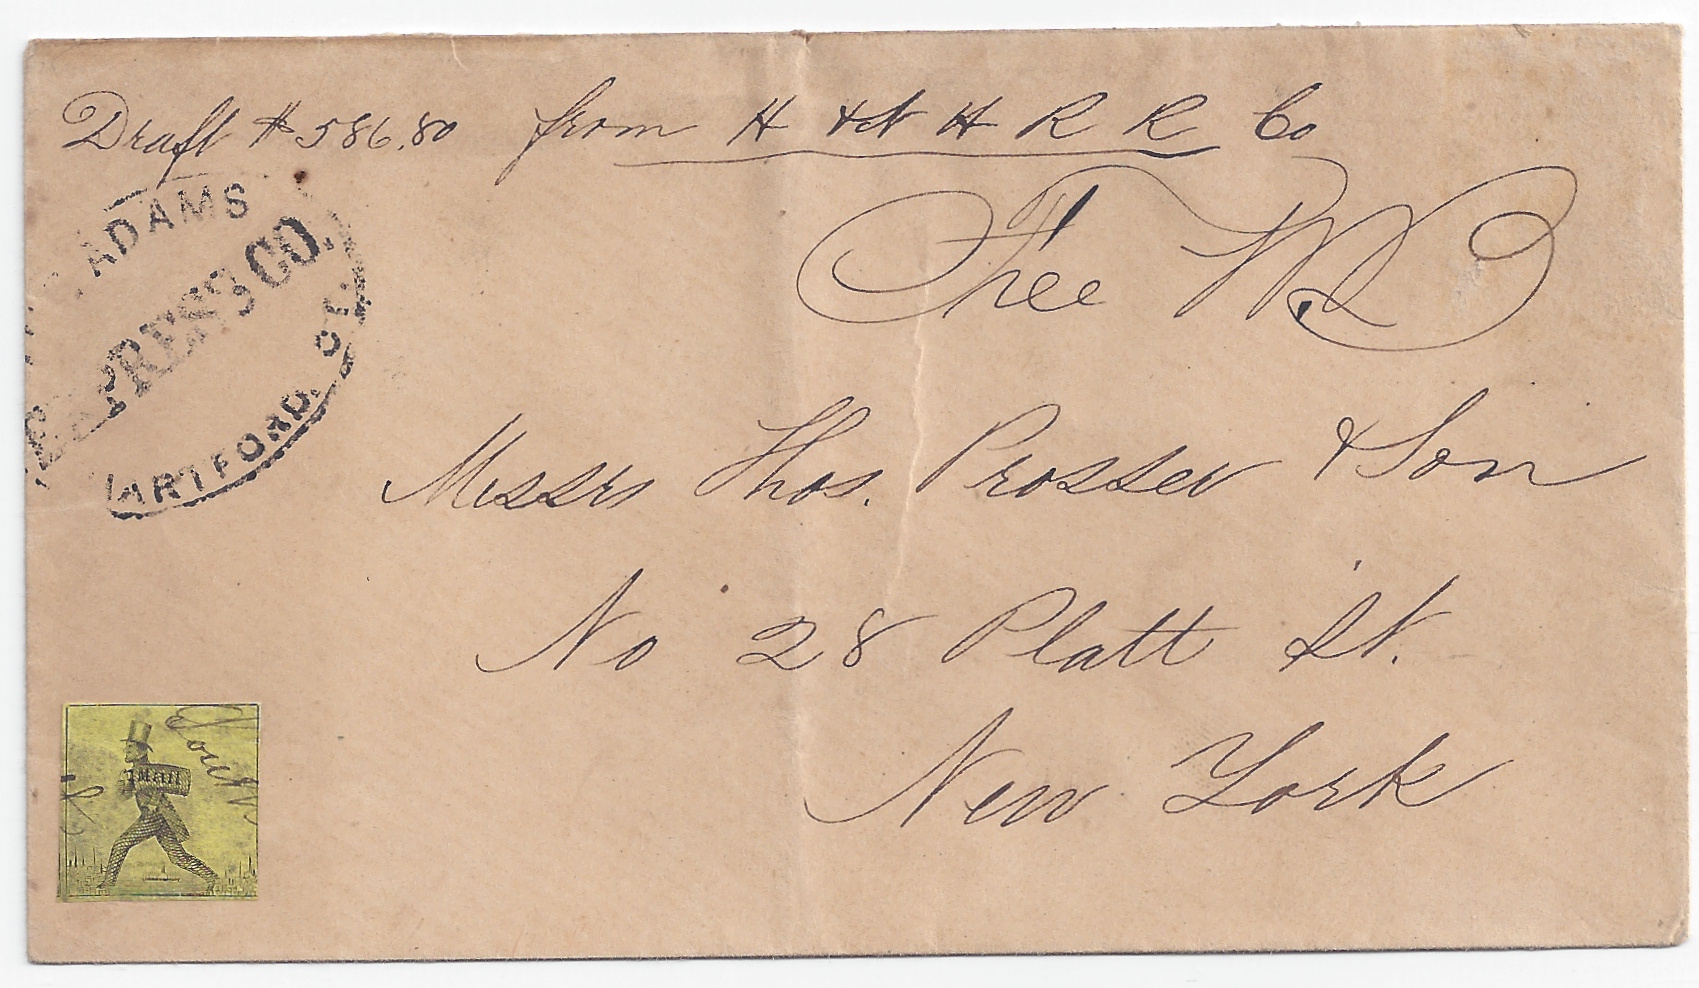 Draft $586.80 from H & N H R R Co
ADAMS
EXPRESS CO.
HARTFORD, CT.
Free
Messrs Thos. Prosser & Son
No 28 Platt St.
New York
MAIL
South